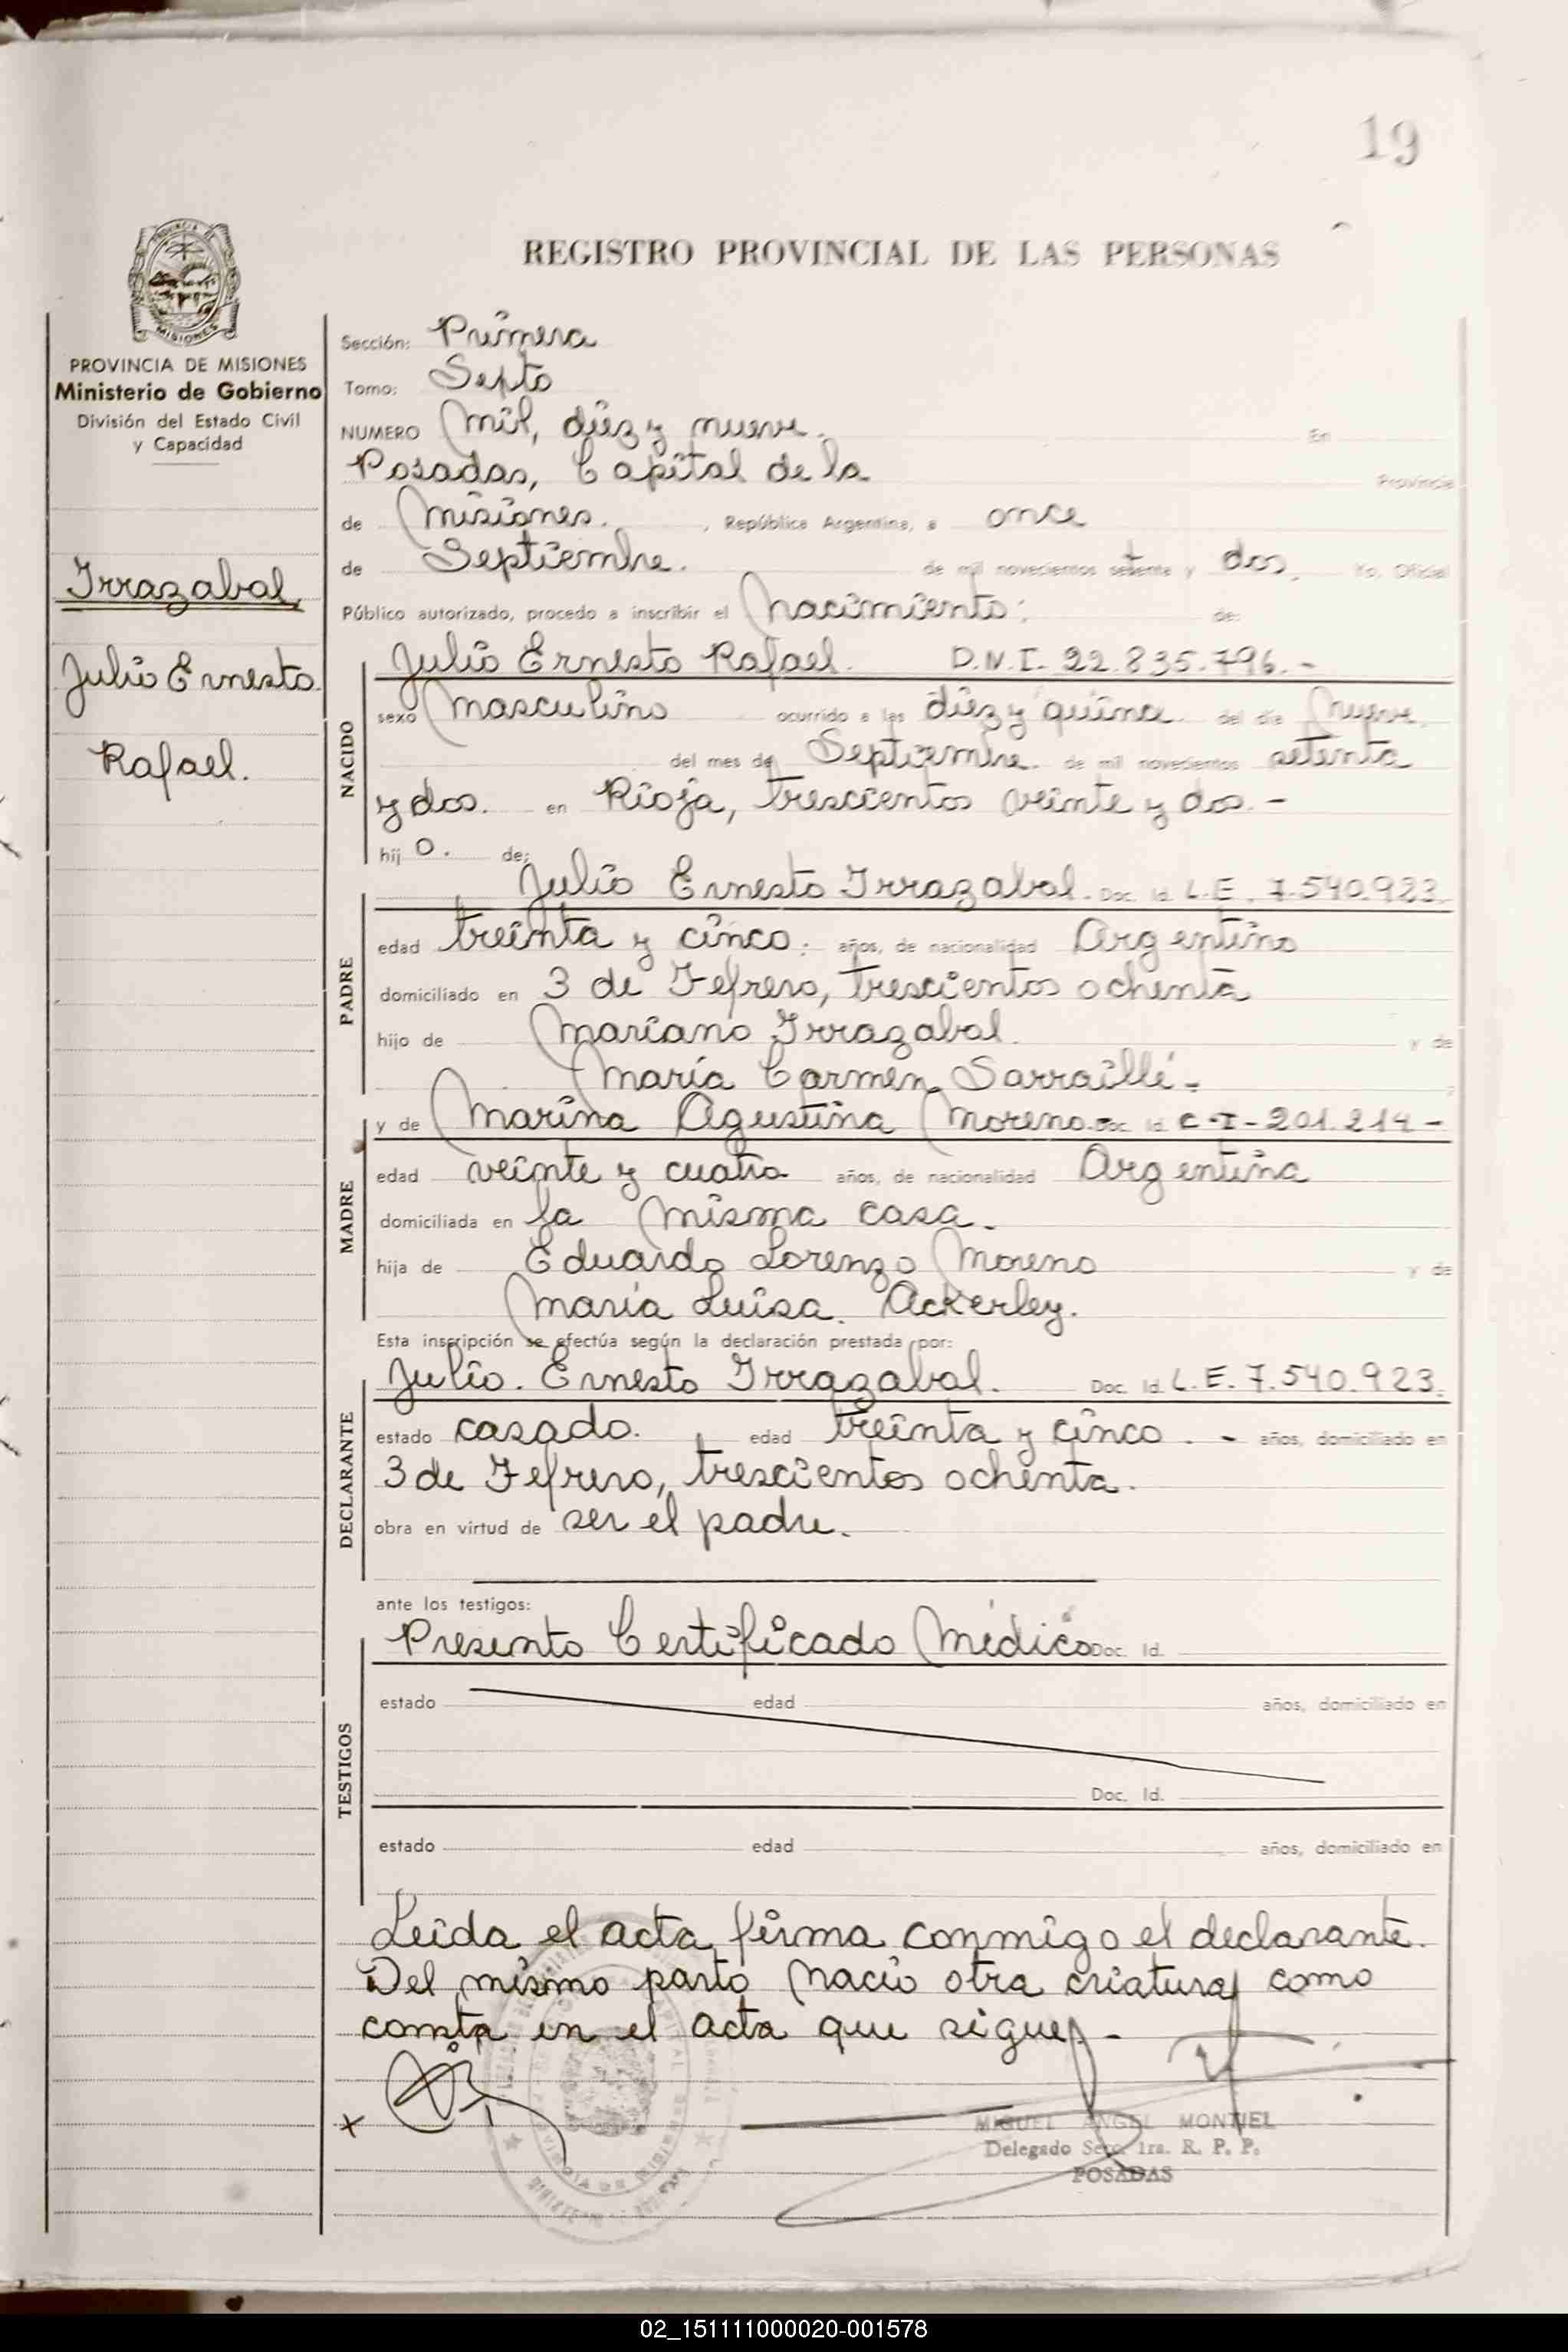 19
REGISTRO PROVINCIAL DE LAS PERSONAS
PROVINCIA DE MISIONES
Ministerio de Gobierno
División del Estado Civil
y Capacidad
Irrazabal,
Julio Ernesto
Rafael.
Sección: Primera
Tomo: Septo
NUMERO Mil, diez y nueve. En
Posadas, Capital de la Provincia
de Misiones. , República Argentina, a once
de Septiembre. de mil novecientos setenta y dos, Yo, Oficial
Público autorizado, procedo a inscribir el Nacimiento: de:
NACIDO
Julio Ernesto Rafael. D.N.I. 22.835.796.-
sexo Masculino ocurrido a las diez y quince del día Nueve.
del mes de Septiembre. de mil novecientos setenta
y dos. en Rioja, trescientos veinte y dos.-
hij o. de:
PADRE
Julio Ernesto Irrazabal. Doc. Id. L.E. 7.540.923.
edad treinta y cinco. años, de nacionalidad Argentino
domiciliado en 3 de Fefrero, trescientos ochenta
hijo de Mariano Irrazabal. y de
María Carmen Sarraillé.-
MADRE
y de Marina Agustina Moreno. Doc. Id. C-I-201.214-
edad veinte y cuatro años, de nacionalidad Argentina
domiciliada en la misma casa.
hija de Eduardo Lorenzo Moreno y de
María Luisa. Ackerley.
Esta inscripción se efectúa según la declaración prestada por:
DECLARANTE
Julio. Ernesto Irrazabal. Doc. Id. L.E. 7.540.923.
estado casado. edad treinta y cinco.- años, domiciliado en
3 de Fefrero, trescientos ochenta.
obra en virtud de ser el padre.
ante los testigos:
TESTIGOS
Presento Certificado Médico Doc. Id.
estado edad años, domiciliado en
Doc. Id.
estado edad años, domiciliado en
Leída el acta firma conmigo el declarante.
Del mismo parto nació otra criatura como
consta en el acta que sigue.-
MIGUEL ANGEL MONTIEL
Delegado Secc. 1ra. R. P. P.
POSADAS
02_151111000020-001578